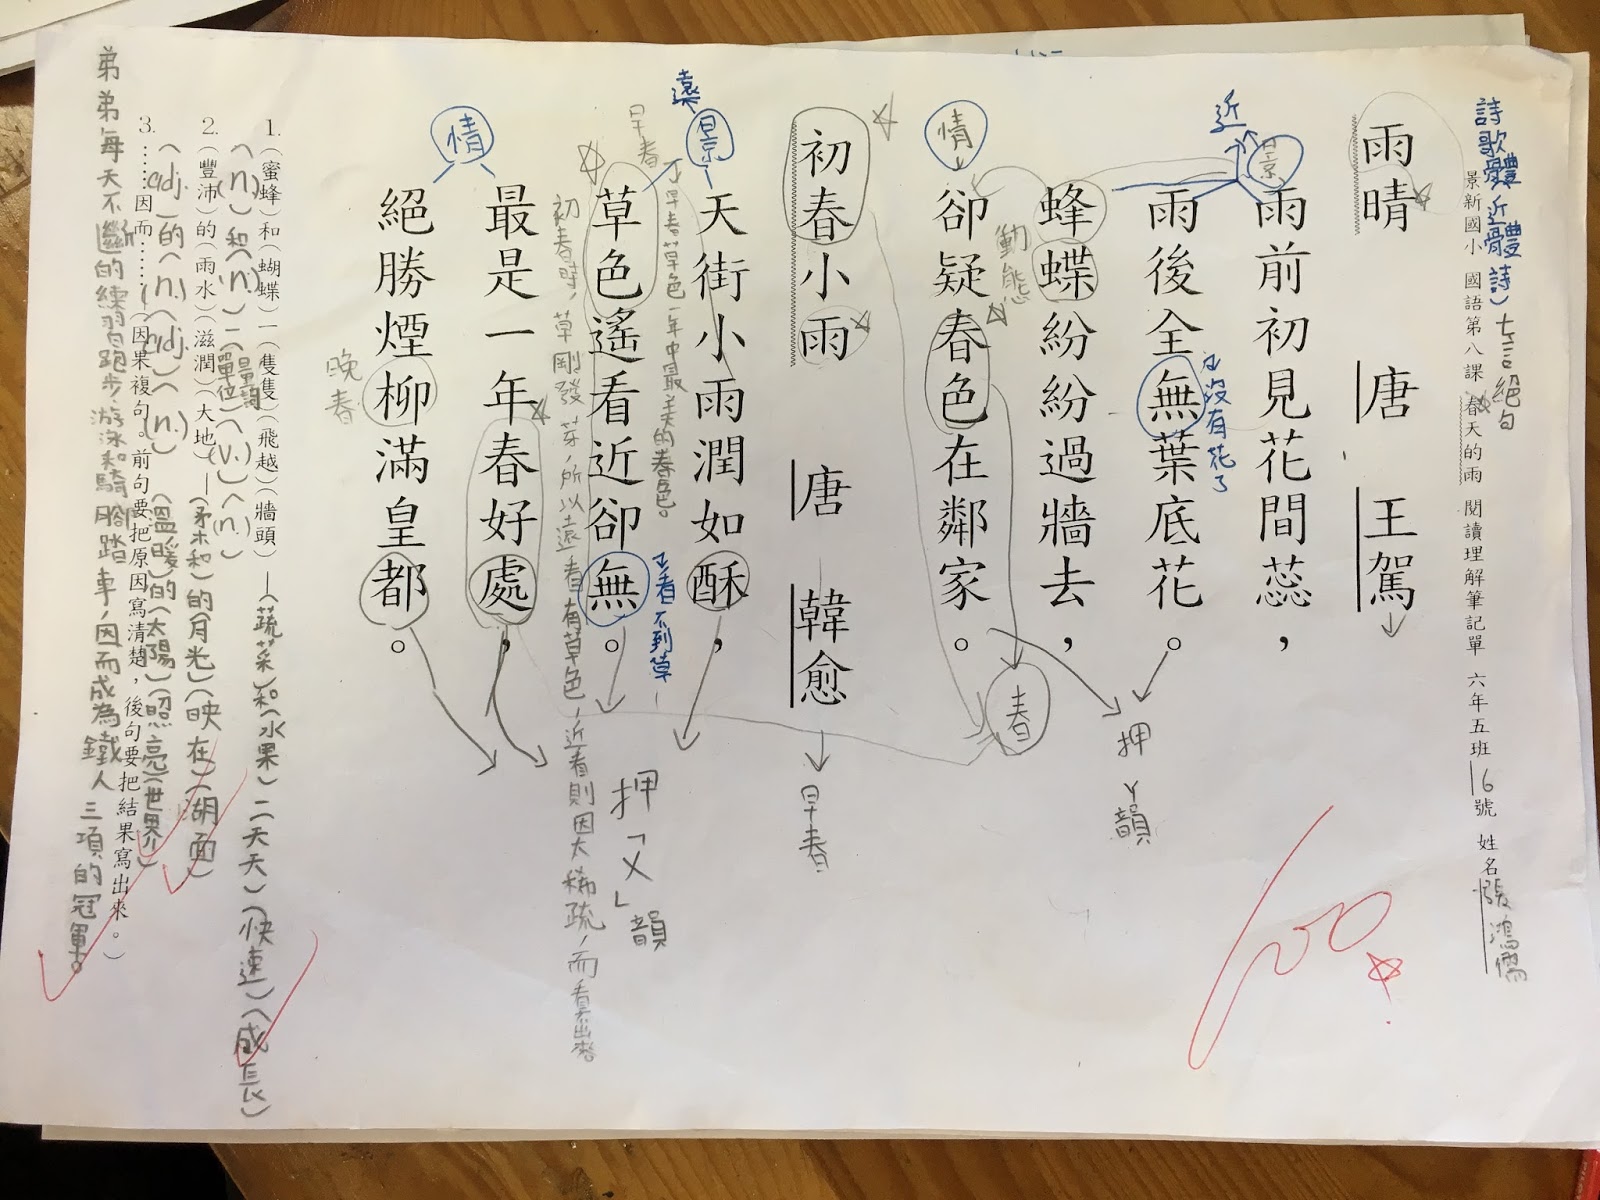 詩歌體(近體詩) 七言絕句
景新國小 國語第八課 春天的雨 閱讀理解筆記單 六年五班 16號 姓名 張鴻儒
雨晴 唐 王駕
近
景
雨前初見花間蕊，
雨後全無葉底花。
沒有花了
蜂蝶紛紛過牆去，
動態
情
卻疑春色在鄰家。
春
押ㄚ韻
初春小雨 唐 韓愈
早春
遠
景
天街小雨潤如酥，
早春
早春草色一年中最美的春色。
看不到草
草色遙看近卻無。
初春時，草剛發芽，所以遠看有草色，近看則因太稀疏，而看不出來
最是一年春好處，
押「ㄨ」韻
情
絕勝煙柳滿皇都。
晚春
1.（蜜蜂）和（蝴蝶）一（隻隻）（飛越）（牆頭）—（蔬菜）和（水果）一天天）（快速）（成長）
（n.）和（n.）一（單位量詞）（v.）（n.）
2.（豐沛）的（雨水）（滋潤）（大地）—（柔和）的（月光）（映在）（湖面）
（adj.）的（n.）（adj.）（n.）（溫暖）的（太陽）（照亮）（世界）
3.……因而……（因果複句。前句要把原因寫清楚，後句要把結果寫出來。）
弟弟每天不斷的練習跑步、游泳和騎腳踏車，因而成為鐵人三項的冠軍。
100